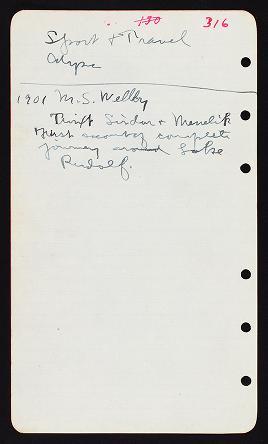 130 316
Sport & Travel
1901 M.S. Wellby
Twixt Sirdar & Menelik
First account of complete
journey around Lake
Rudolf.